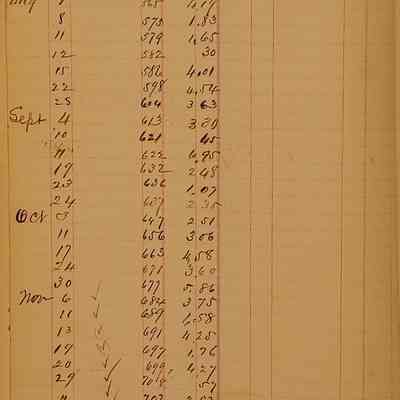 8 575 1.83
11 579 1.65
12 582 30
15 586 4.01
22 598 4.54
25 604 3 63
Sept 4 613 3 30
10 621 45
11 622 6.95
19 632 2 48
23 636 1.07
24 637 2 35
Oct 3 647 2 51
11 656 3 06
17 663 4.58
24 671 3 60
30 677 5.86
Nov 6 684 3 75
11 689 1.58
13 691 4 25
19 697 1.76
20 699 4 27
29 57